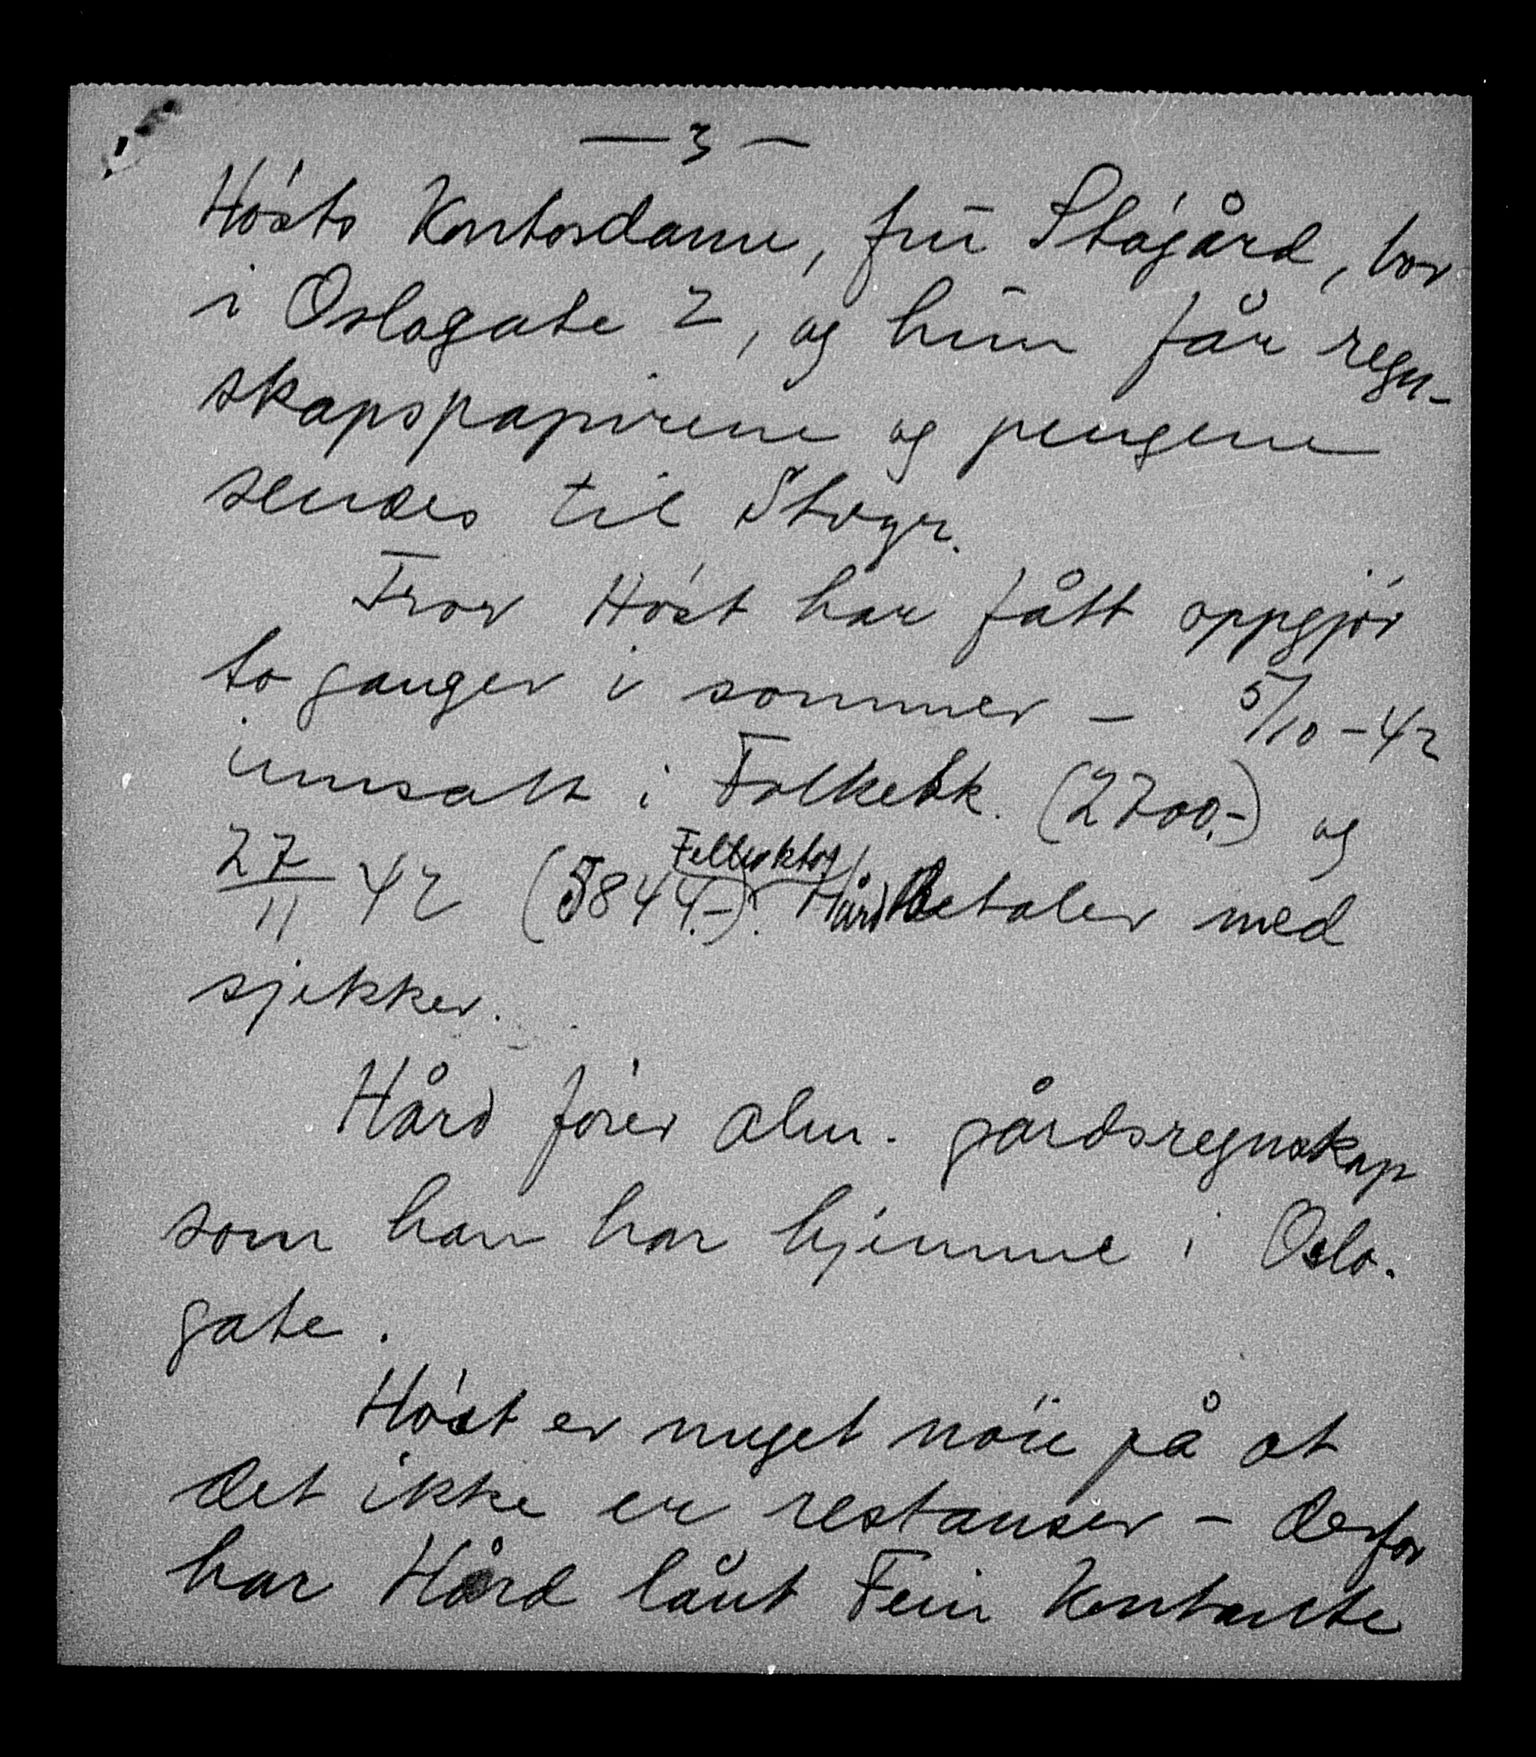 — 3 —
Høsts Kontordame, frū Støgård, bor
i Oslogate 2, og hūn får regn-
skapspapirene og pengene
sendes til Støgr.
Tror Høst har fått oppgjør
to ganger i sommer – 5/10 – 42
innsatt i Folkebk. (2700.–) og
27/11 42 (5844.–). Hård betaler med
sjekker.
Hård fører alm. gårdsregnskap
som han har hjemme i Oslo-
gate.
Høst er meget nöie på at
det ikke er restanser – derfor
har Hård lånt Fein Kontante